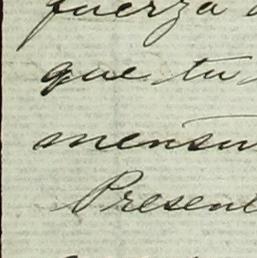 fuerza
que tu
mensu
Present